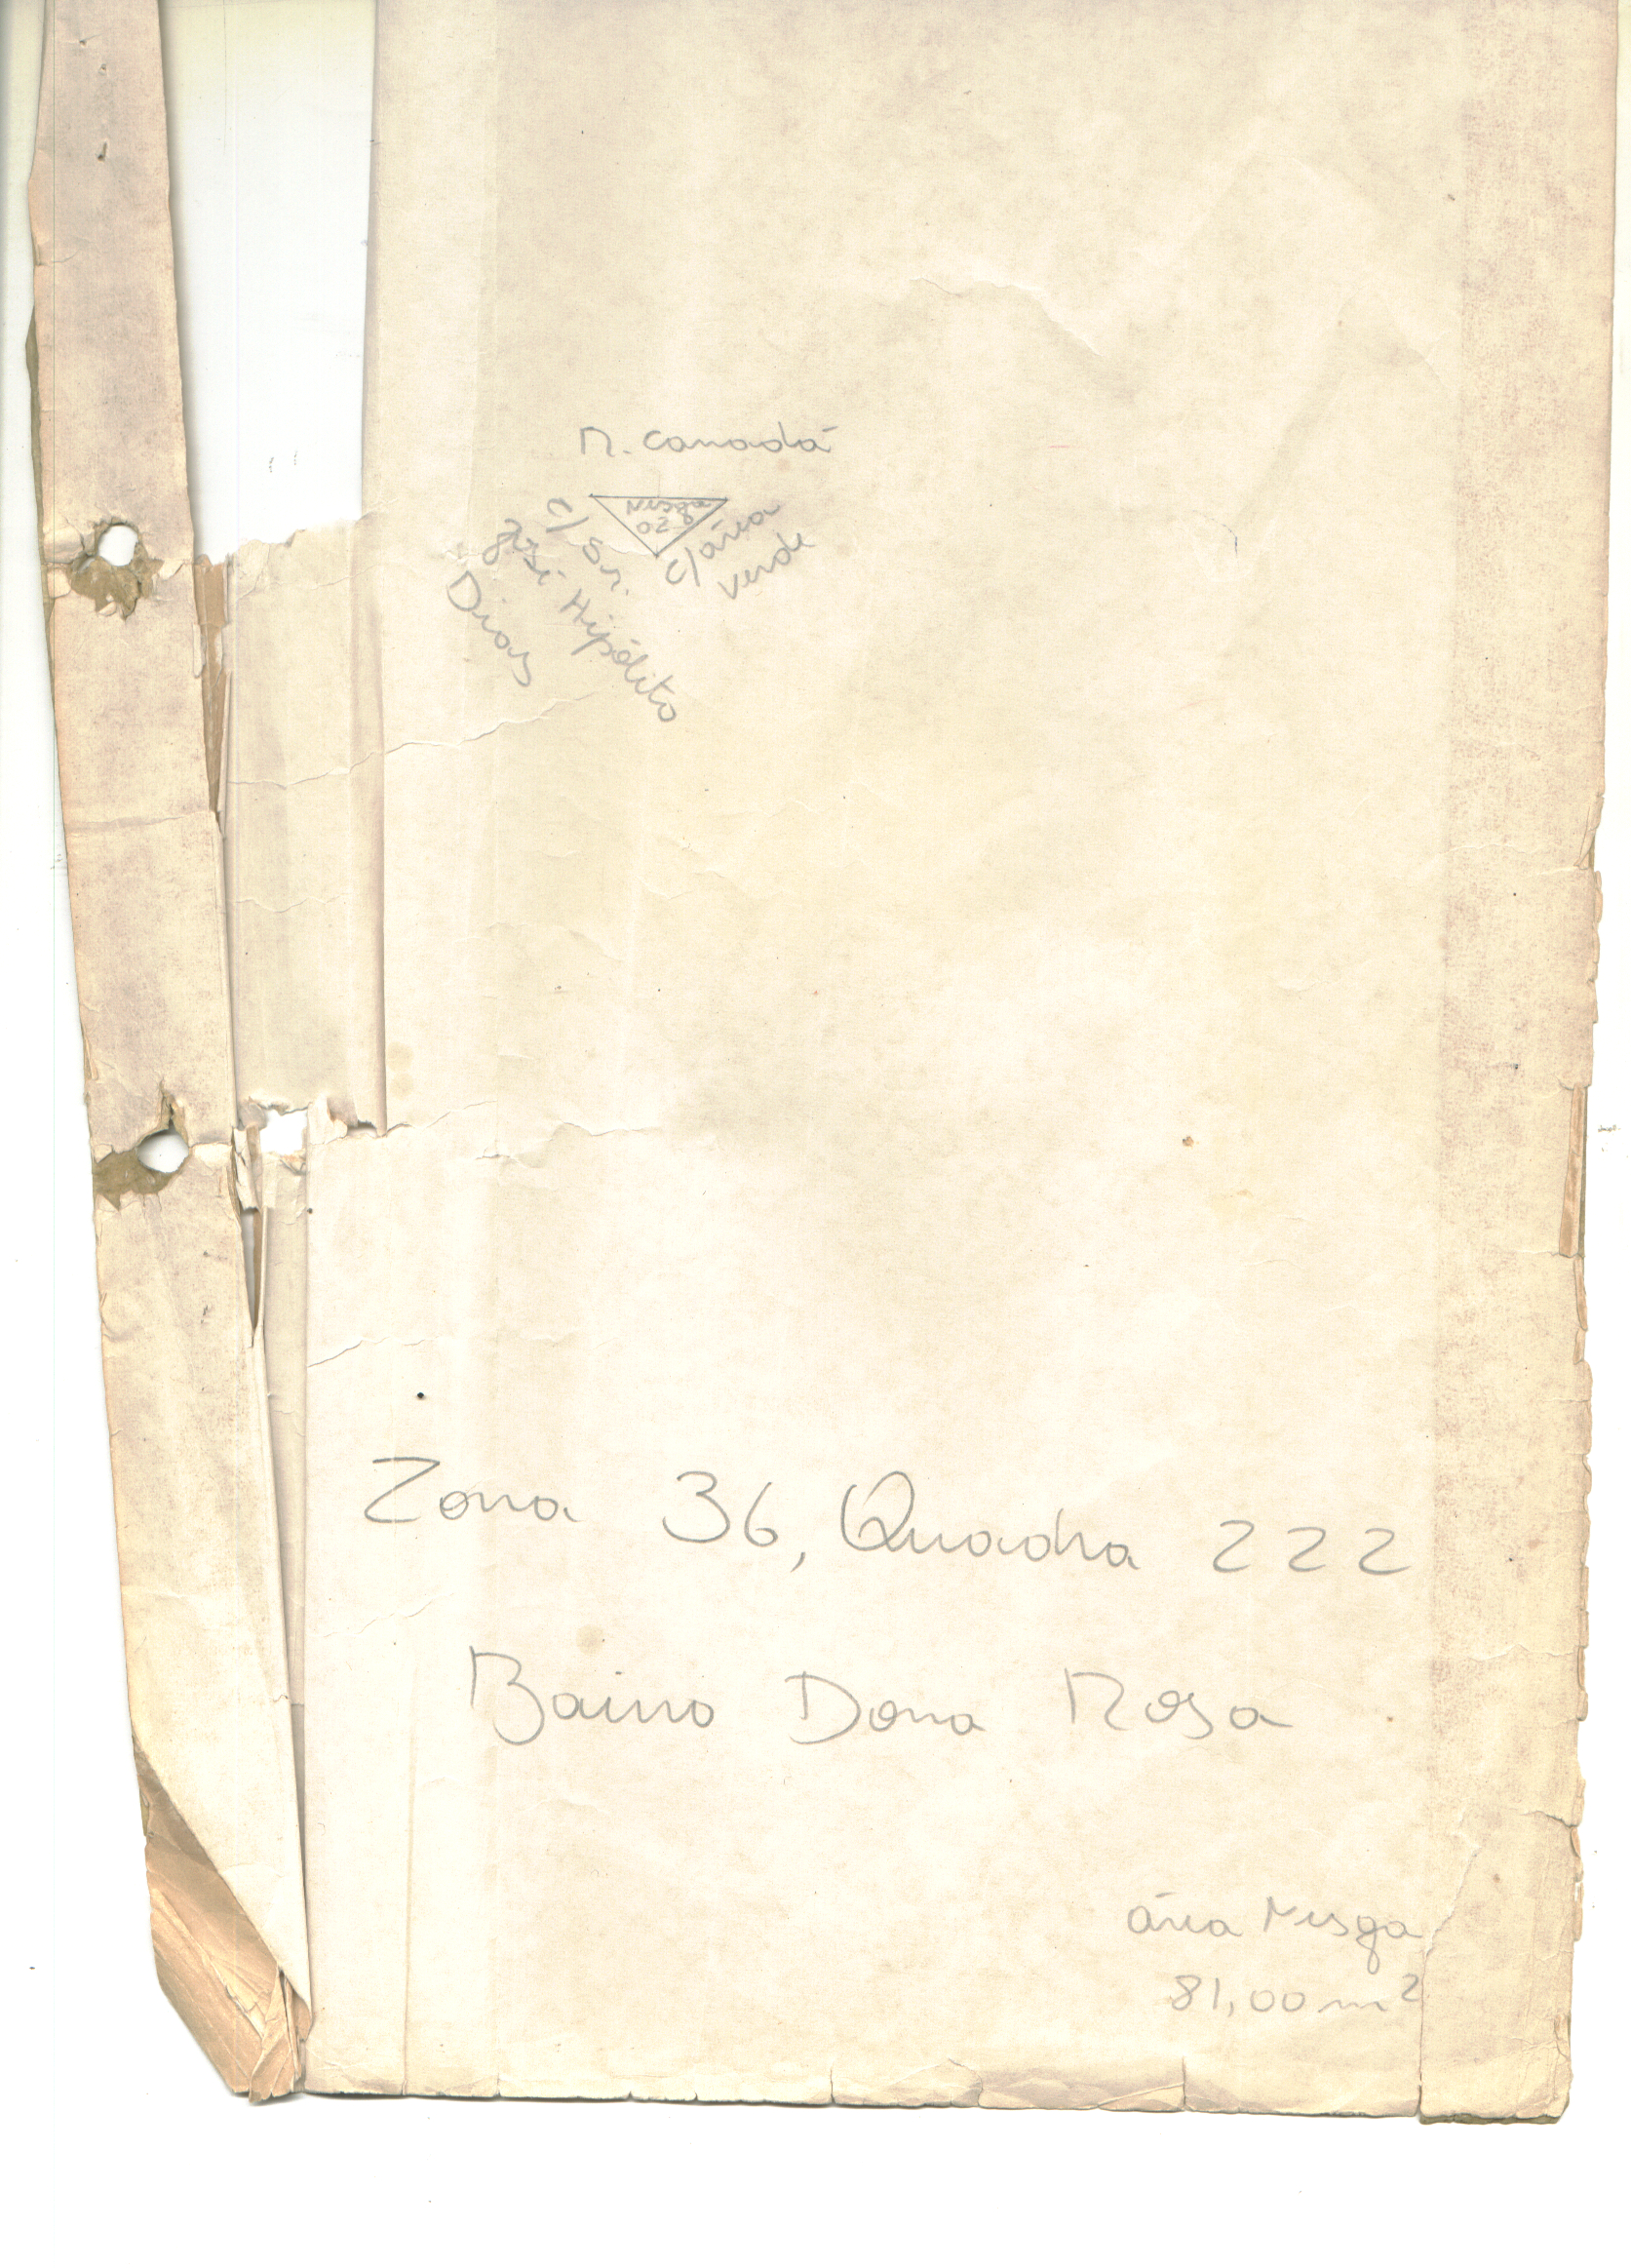 R. Canadá
c/ Sr.
José Hipólito
Dias
c/ área
verde
Zona 36, Quadra 222
Bairro Dona Rosa
área Nesga
81,00 m²